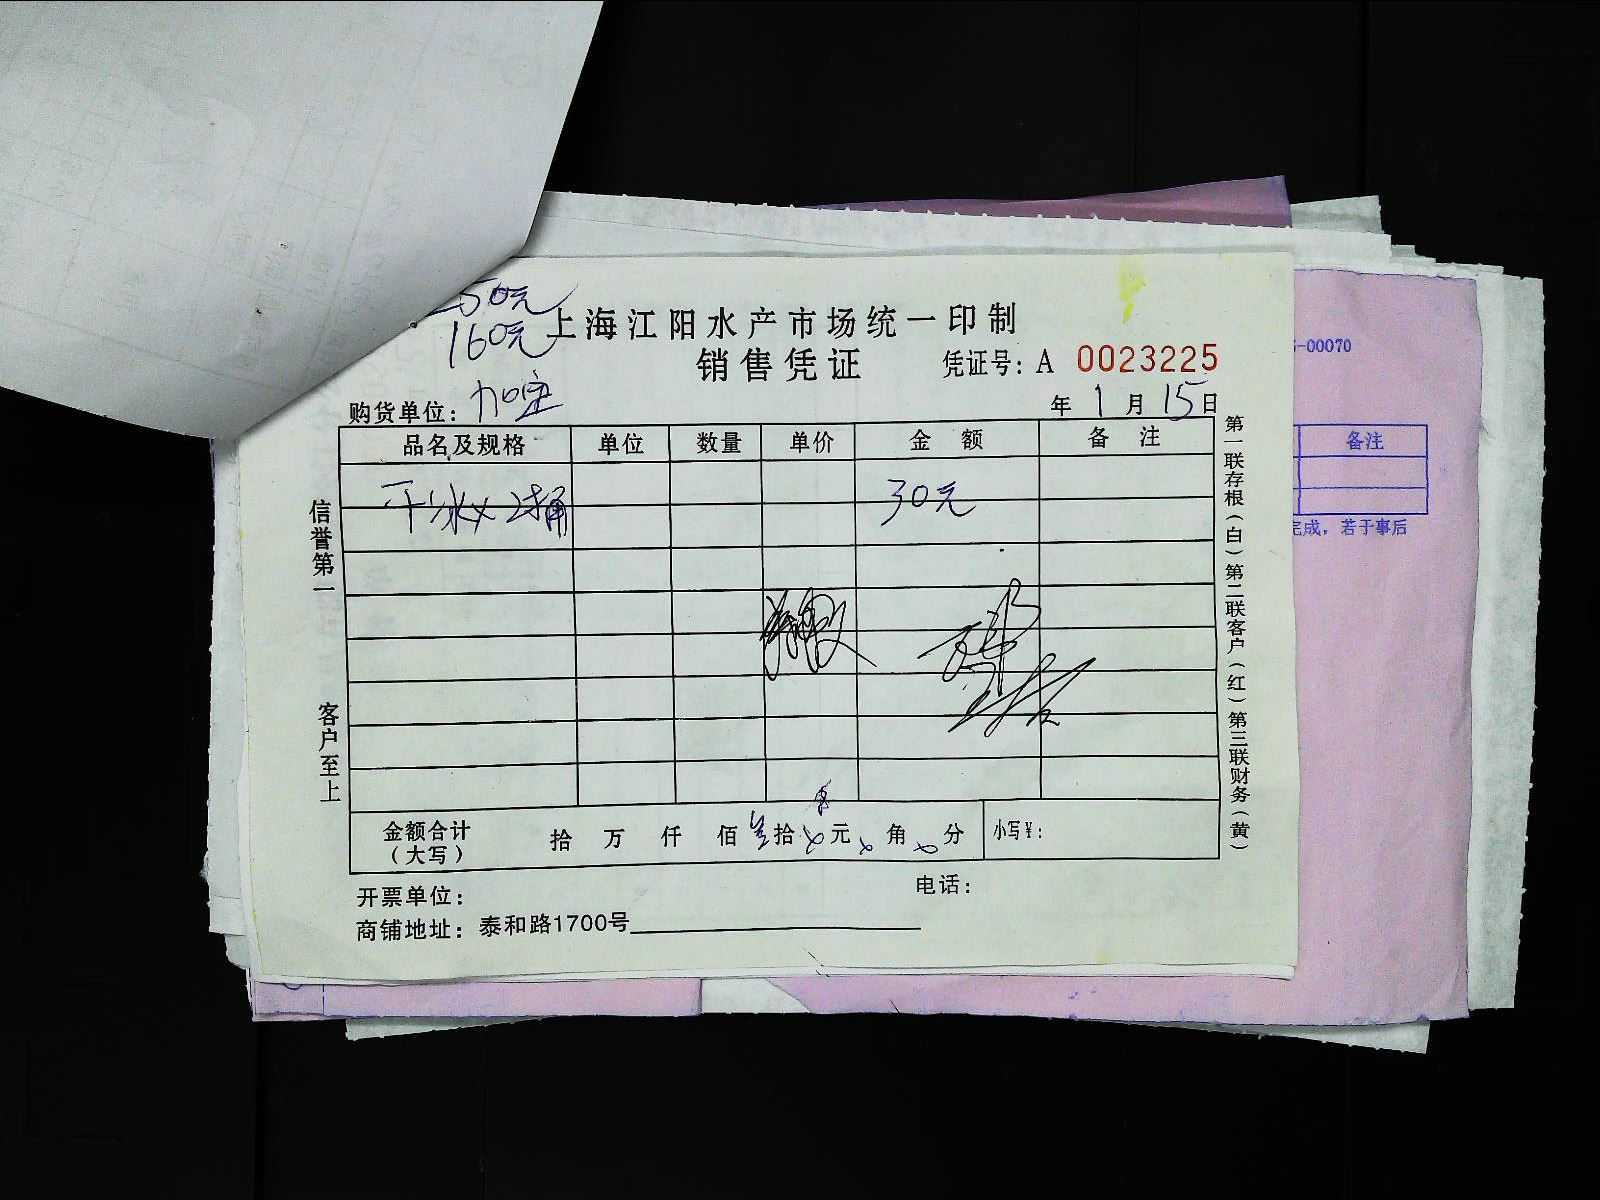 50元
160元
上海江阳水产市场统一印制
销售凭证
凭证号: A 0023225
购货单位: 加定
年 1 月 15 日
品名及规格 单位 数量 单价 金额 备注
干冰 桶 30元
信誉第一
客户至上
第一联存根(白)第二联客户(红)第三联财务(黄)
金额合计
(大写)
拾 万 仟 佰 叁拾 元 角 分 小写¥:
开票单位:
电话:
商铺地址: 泰和路1700号
-00070
备注
完成,若于事后